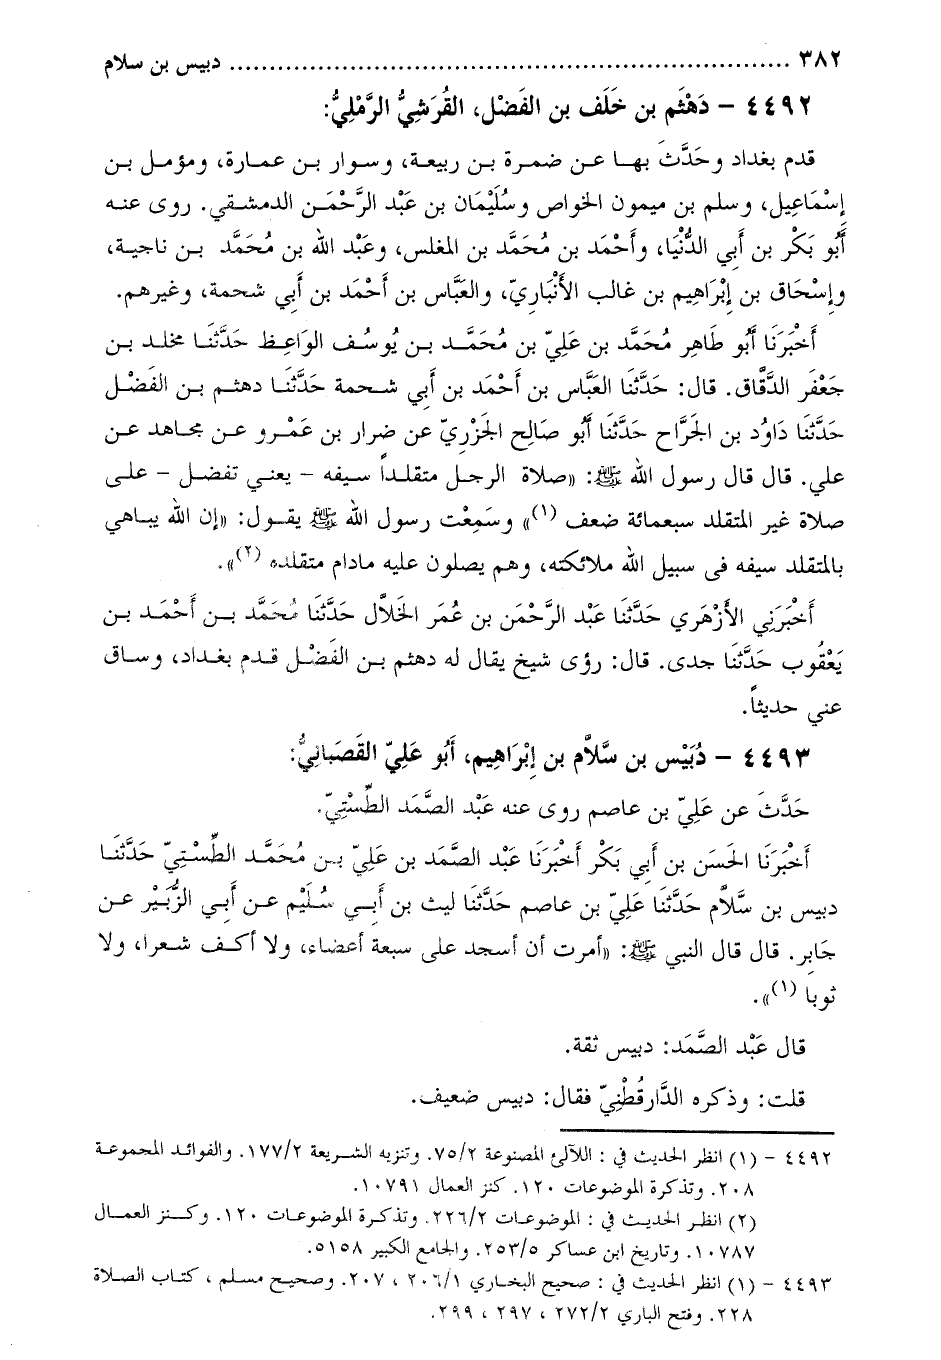 ٣٨٢ ................................................................ دبيس بن سلام
٤٤٩٢ - دَهْثَم بن خَلَف بن الفَضْل، القُرَشِيُّ الرَّمْلِيُّ:
قدم بغداد وحَدَّثَ بهـا عن ضمرة بن ربيعة، وسوار بن عمارة، ومؤمل بن
إِسْمَاعِيل، وسلم بن ميمون الخواص وسُلَيْمَان بن عَبْد الرَّحْمَن الدمشقي. روى عنه
أَبُو بَكْر بن أَبي الدُّنْيَا، وأَحْمَد بن مُحَمَّد بن المغلس، وعَبْد الله بن مُحَمَّد بن ناجية،
وإِسْحَاق بن إِبْرَاهِيم بن غالب الأَنْبَارِيّ، والعَبَّاس بن أَحْمَد بن أَبي شحمة، وغيرهم.
أَخْبَرَنَا أَبُو طَاهِر مُحَمَّد بن عَلِيّ بن مُحَمَّد بن يُوسُف الوَاعِظ حَدَّثَنَا مخلد بن
جَعْفَر الدَّقَّاق. قال: حَدَّثَنَا العَبَّاس بن أَحْمَد بن أَبي شحمة حَدَّثَنَا دهثم بن الفَضْل
حَدَّثَنَا دَاوُد بن الجَرَّاح حَدَّثَنَا أَبُو صَالِح الجَزْرِيّ عن ضرار بن عَمْرو عن مجاهد عن
علي. قال قال رسول الله ﷺ: «صلاة الرجل متقلداً سيفه - يعني تفضل - على
صلاة غير المتقلد سبعمائة ضعف (١)» وسَمِعْت رسول الله ﷺ يقول: «إن الله يباهي
بالمتقلد سيفه فى سبيل الله ملائكته، وهم يصلون عليه مادام متقلده (٢)».
أَخْبَرَنِي الأَزْهَري حَدَّثَنَا عَبْد الرَّحْمَن بن عُمَر الخَلَّال حَدَّثَنَا مُحَمَّد بن أَحْمَد بن
يَعْقُوب حَدَّثَنَا جدى. قال: رؤى شيخ يقال له دهثم بن الفَضْل قدم بغداد، وساق
عني حديثاً.
٤٤٩٣ - دُبَيْس بن سَّلاَّم بن إِبْرَاهِيم، أَبُو عَلِيّ القَصَبَانِيُّ:
حَدَّثَ عن عَلِيّ بن عاصم روى عنه عَبْد الصَّمَد الطِّسْتِيّ.
أَخْبَرَنَا الحَسَن بن أَبي بَكْر أَخْبَرَنَا عَبْد الصَّمَد بن عَلِيّ بن مُحَمَّد الطِّسْتِيّ حَدَّثَنَا
دبيس بن سَّلاَّم حَدَّثَنَا عَلِيّ بن عاصم حَدَّثَنَا ليث بن أَبي سُلَيْم عن أَبي الزُّبَيْر عن
جَابر. قال قال النبي ﷺ: «أمرت أن أسجد على سبعة أعضاء، ولا أكف شعرا، ولا
ثوبا (١)».
قال عَبْد الصَّمَد: دبيس ثقة.
قلت: وذكره الدَّارقُطْنِيّ فقال: دبيس ضعيف.
٤٤٩٢ - (١) انظر الحديث في : اللآلئ المصنوعة ٧٥/٢. وتنزيه الشريعة ١٧٧/٢. والفوائد المجموعة
٢٠٨. وتذكرة الموضوعات ١٢٠. كنز العمال ١٠٧٩١.
(٢) انظر الحديث في : الموضوعات ٢٢٦/٢. وتذكرة الموضوعات ١٢٠. وكنز العمال
١٠٧٨٧. وتاريخ ابن عساكر ٢٥٣/٥. والجامع الكبير ٥١٥٨.
٤٤٩٣ - (١) انظر الحديث في : صحيح البخاري ٢٠٦/١ ، ٢٠٧. وصحيح مسلم ، كتاب الصلاة
٢٢٨. وفتح الباري ٢٧٢/٢ ، ٢٩٧ ، ٢٩٩.